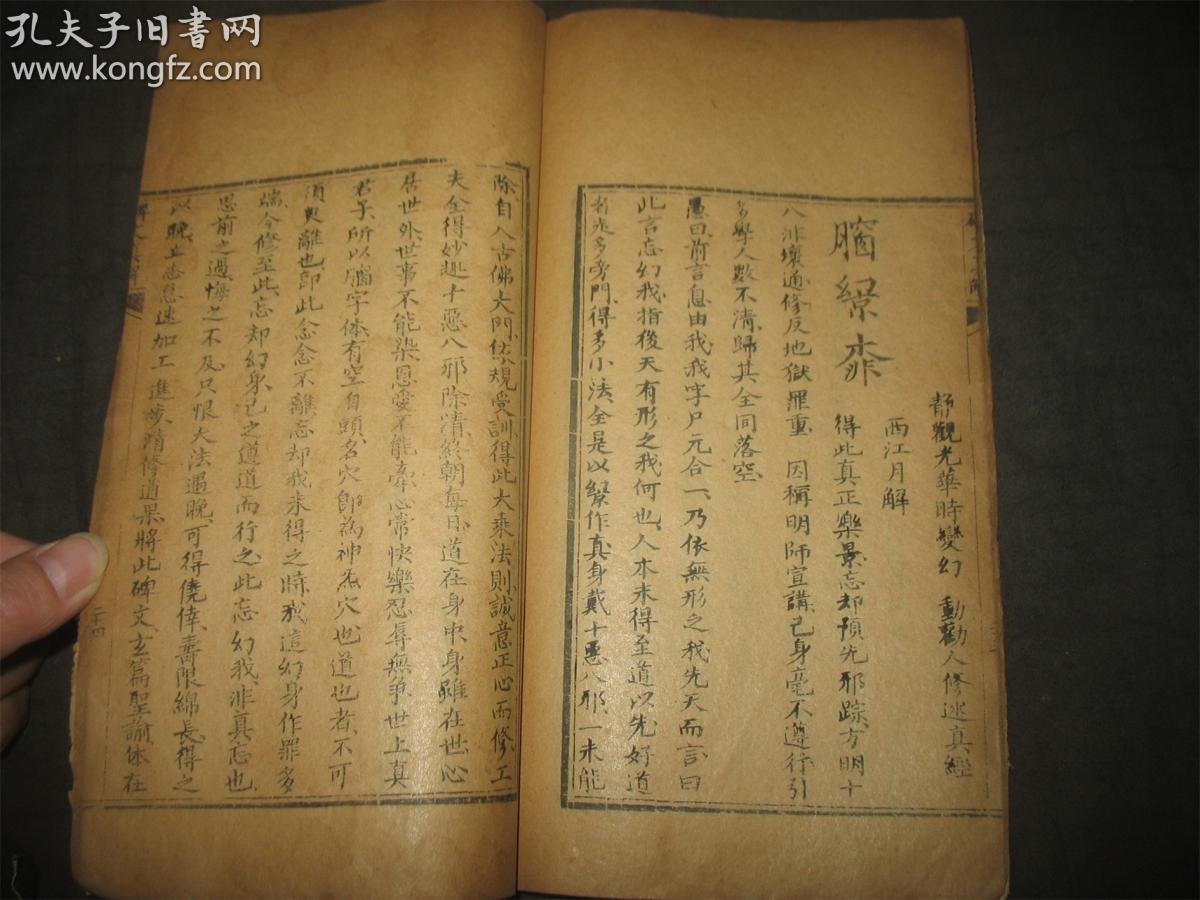 孔夫子旧书网
www.kongfz.com
靜觀光華時變幻 動勸人修述真經
西江月解
得此真正樂景忘却預先邪踪方明十
八非壞通修反地獄罪重 因稱明師宣講己身毫不遵行引
多學人數不清歸其全同落空
愚曰前言息由我我字尸元合一乃依無形之我先天而言曰
此言忘幻我指後天有形之我何也人本未得至道以先好道
者走多旁門得多小法全是以假作真身戴十惡八邪一未能
除自入古佛大門依規受訓得此大乘法則誠意正心而修工
夫全得妙趣十惡八邪除清終朝每日道在身中身雖在世心
居世外世事不能染恩愛不能牽心常快樂忍辱無爭世上真
君子所以腦字体有空自頭名穴即為神炁穴也道也者不可
須臾離也即此念念不離忘却我未得之時我這幻身作罪多
端今修至此忘却幻身己之遵道而行之此忘幻我非真忘也
思前之過悔之不及只恨大法遇晚可得僥倖壽限綿長得之
以晚立志急速加工進步精修道果將此碑文玄篇聖諭体在
二十四